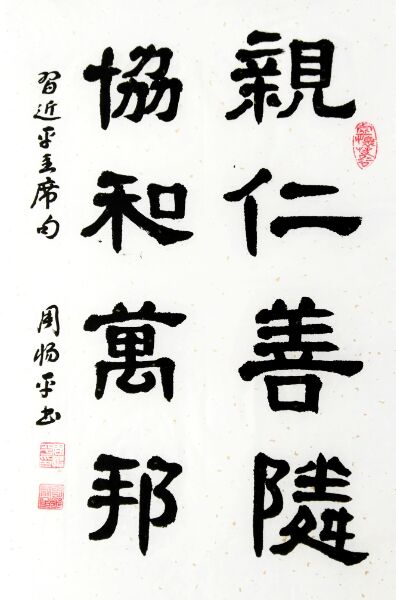 親仁善隣
協和萬邦
習近平主席句
周惕平书